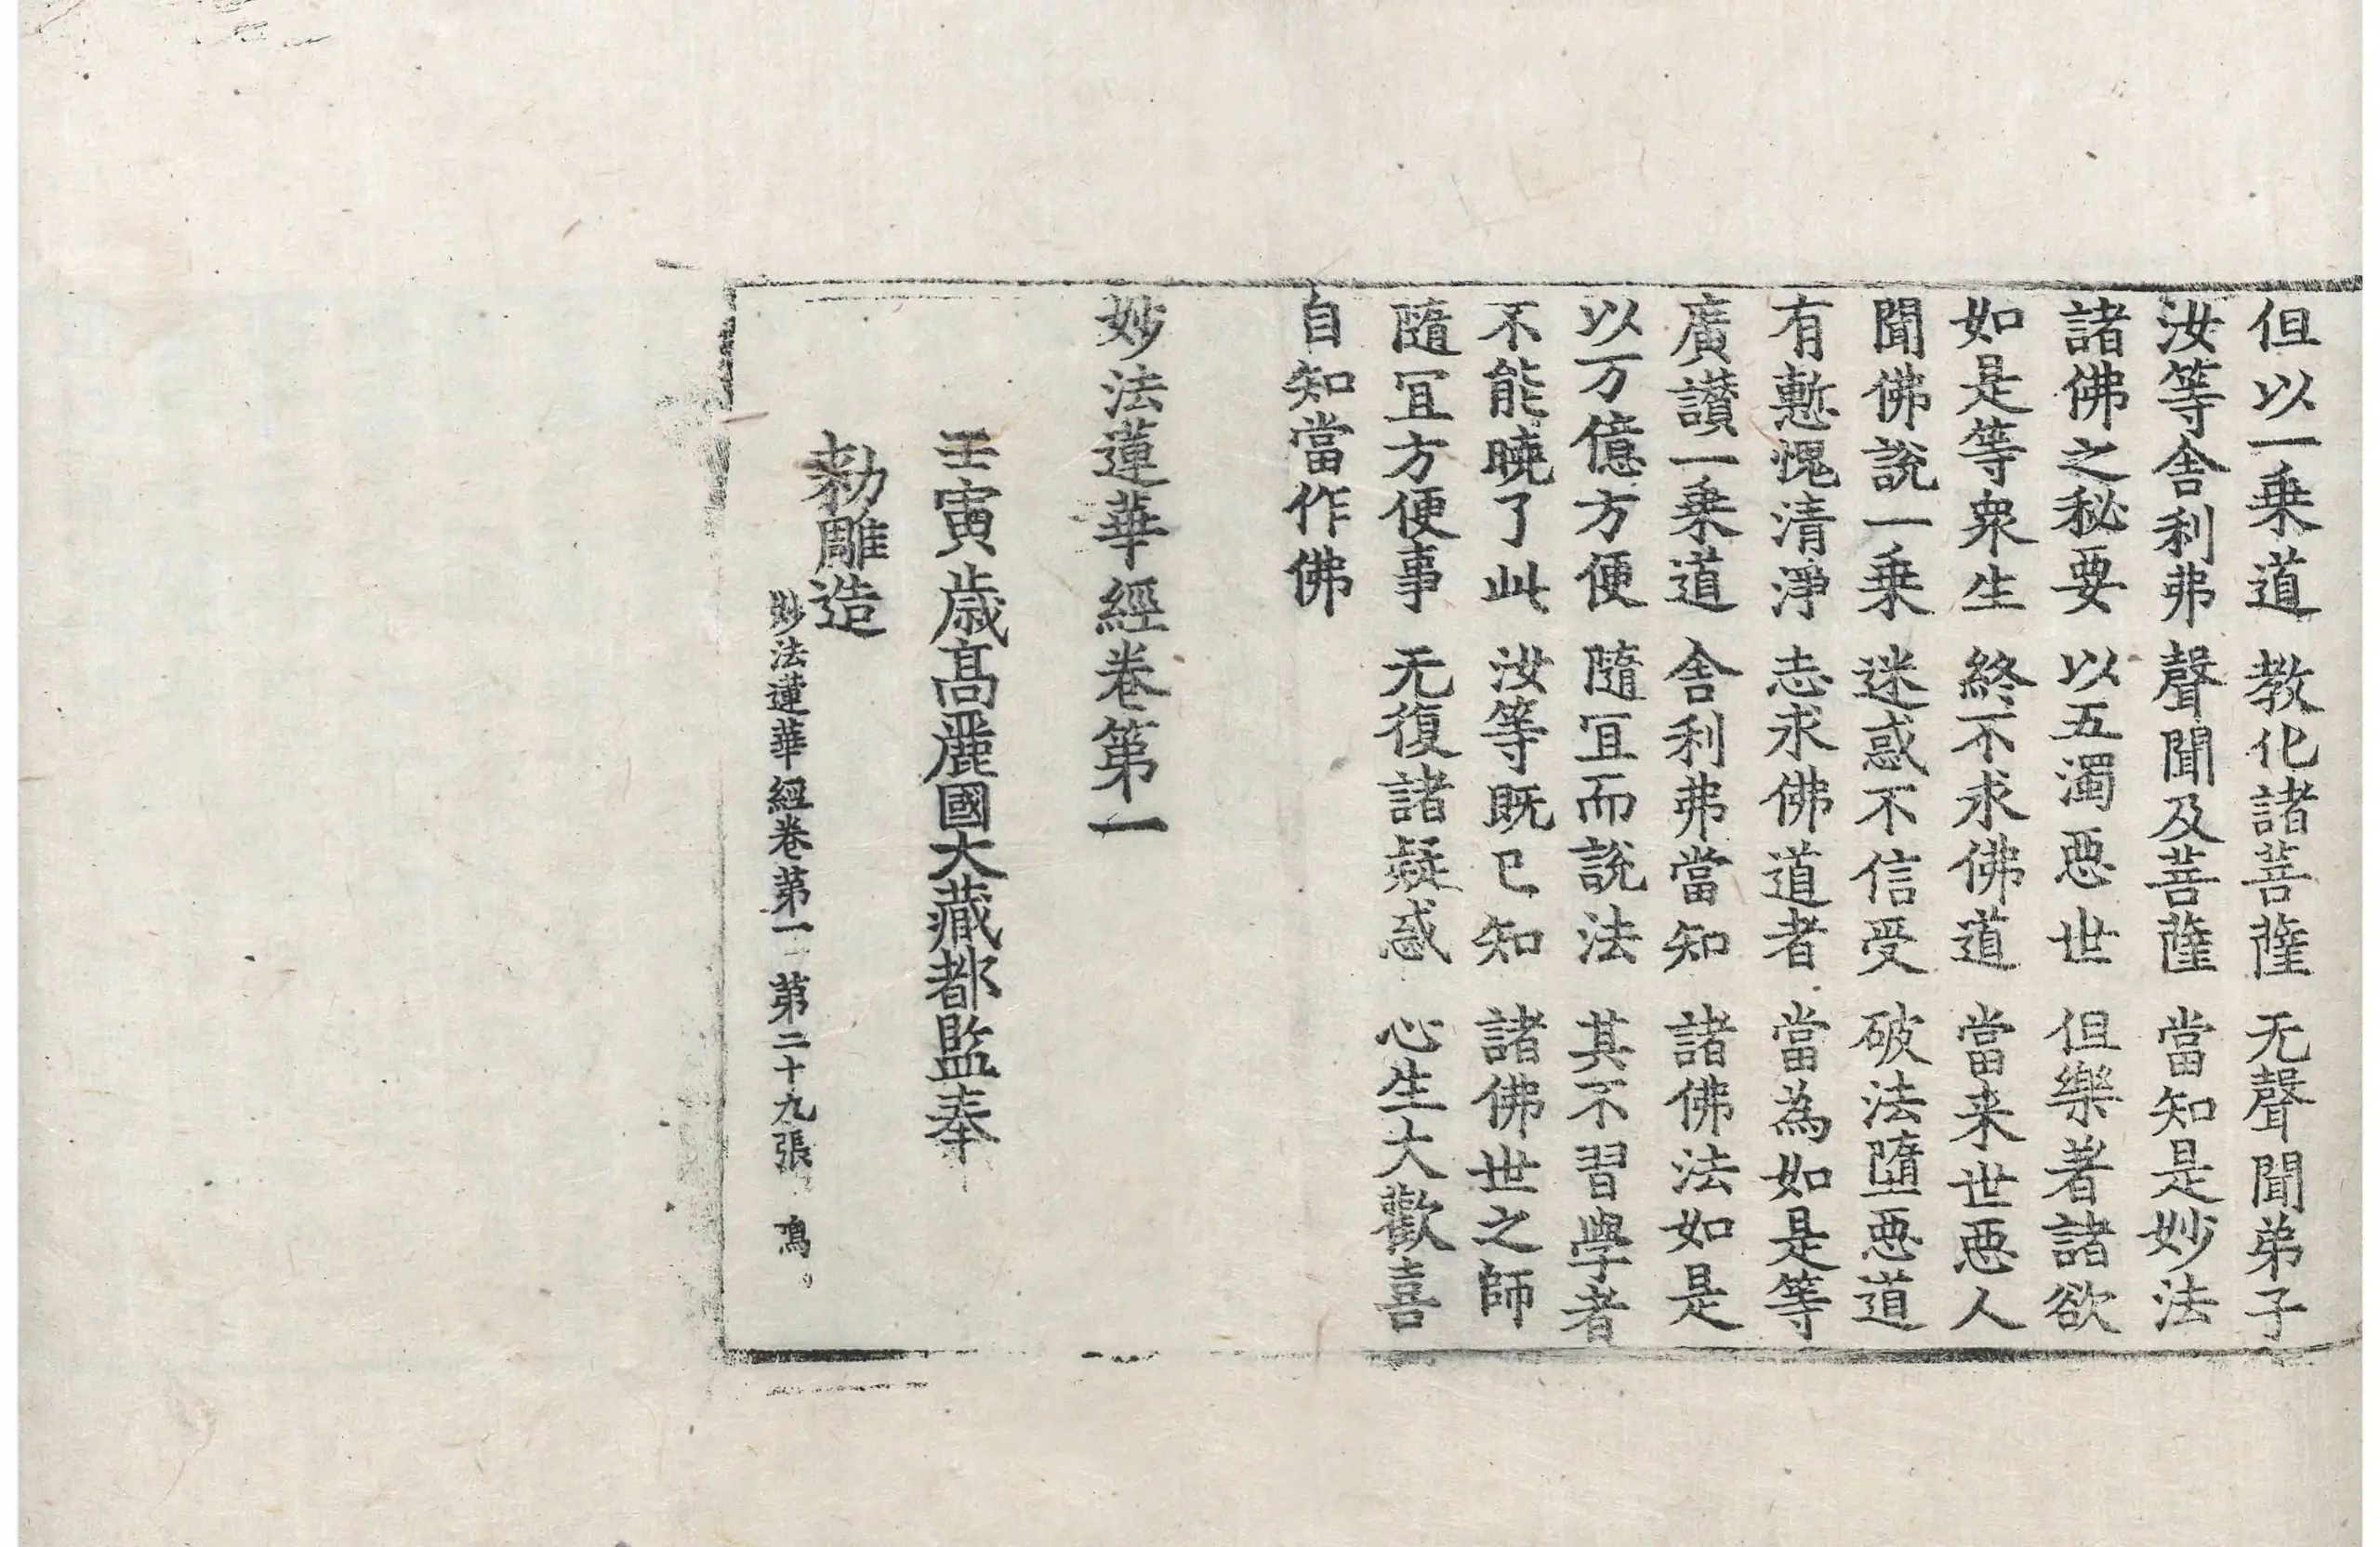 但以一乗道　教化諸菩薩　无聲聞弟子
汝等舍利弗　聲聞及菩薩　當知是妙法
諸佛之秘要　以五濁惡世　但樂著諸欲
如是等衆生　終不求佛道　當来世惡人
聞佛說一乗　迷惑不信受　破法墮惡道
有慙愧清淨　志求佛道者　當為如是等
廣讃一乗道　舍利弗當知　諸佛法如是
以万億方便　隨冝而說法　其不習學者
不能曉了此　汝等既已知　諸佛世之師
隨冝方便事　无復諸疑惑　心生大歡喜
自知當作佛
妙法蓮華經卷第一
壬寅歳高麗國大藏都監奉
勑雕造
妙法蓮華經卷第一　第二十九張　鳬